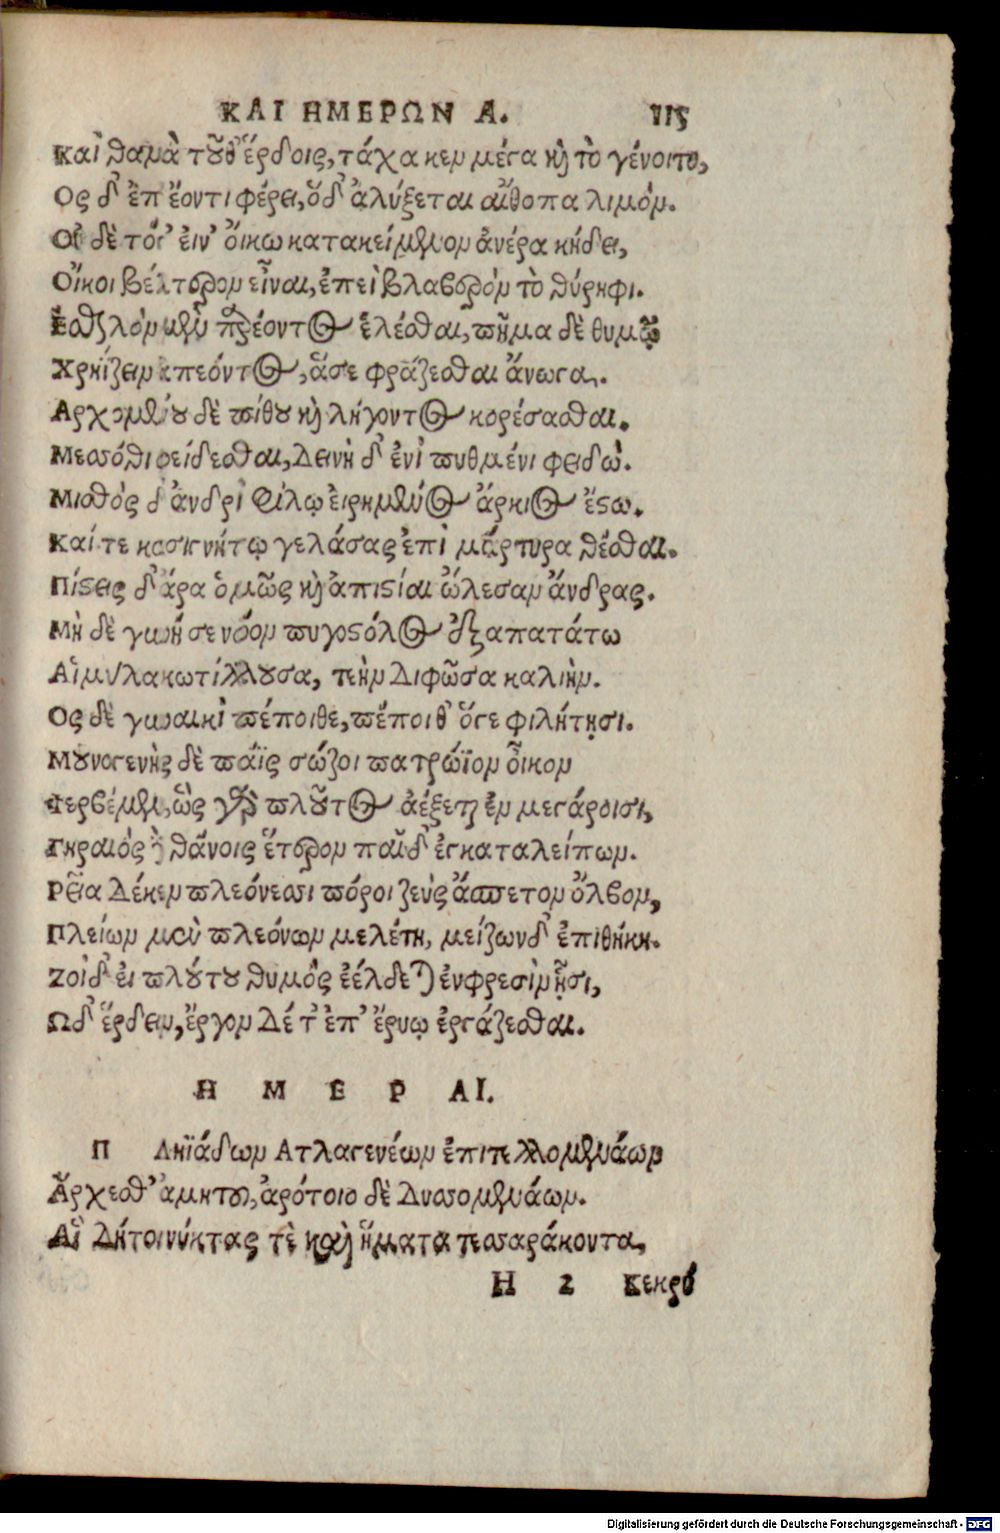 ΚΑΙ ΗΜΕΡΩΝ Α. 115
Καὶ θαμὰ τοῦθ' ἕρδοις, τάχα κεν μέγα καὶ τὸ γένοιτο,
Ος δ' ἐπ' ἔοντι φέρει, ὅδ' ἀλύξεται αἴθοπα λιμόν.
Οὐ δὲ τόγ' ἐιν' ὄικω κατακείμενον ἀνέρα κήδει,
Οἴκοι βέλτερον εἶναι, ἐπεὶ βλαβερὸν τὸ θύρηφι.
Εσθλὸν μὲν παρέοντος ἑλέσθαι, πῆμα δὲ θυμῷ
Χρηΐζειν ἀπεόντος, ἅσε φράζεσθαι ἄνωγα.
Αρχομένου δὲ πίθου καὶ λήγοντος κορέσασθαι.
Μεσόθι φείδεσθαι, δεινὴ δ' ἐνὶ πυθμένι φειδώ.
Μισθὸς δ' ἀνδρὶ φίλῳ ἐιρημένος ἄρκιος ἔστω.
Καί τε κασιγνήτῳ γελάσας ἐπὶ μάρτυρα θέσθαι.
Πίστεις δ' ἄρα ὁμῶς καὶ ἀπιστίαι ὤλεσαν ἄνδρας.
Μὴ δὲ γυνή σε νόον πυγοστόλος ἐξαπατάτω
Αἱμύλα κωτίλλουσα, τεὴν διφῶσα καλιήν.
Ος δὲ γυναικὶ πέποιθε, πέποιθ' ὅγε φιλήτῃσι.
Μουνογενὴς δὲ πάϊς σώζοι πατρώϊον οἶκον
Φερβέμεν, ὣς γὰρ πλοῦτος ἀέξεται ἐν μεγάροισι,
Γηραιὸς δὲ θάνοις ἕτερον παῖδ' ἐγκαταλείπων.
Ρεῖα δέ κεν πλεόνεσσι πόροι ζεὺς ἄσπετον ὄλβον,
Πλείων μὲν πλεόνων μελέτη, μείζων δ' ἐπιθήκη.
Σοὶ δ' ἐι πλούτου θυμὸς ἐέλδεται ἐν φρεσὶν ᾗσι,
Ωδ' ἕρδειν, ἔργον δέ τ' ἐπ' ἔργῳ ἐργάζεσθαι.
Η Μ Ε Ρ ΑΙ.
Π ληϊάδων Ατλαγενέων ἐπιτελλομενάων
Ἄρχεσθ' ἀμητοῦ, ἀρότοιο δὲ δυσομενάων.
Αἳ δή τοι νύκτας τὲ καὶ ἤματα τεσσαράκοντα,
Η 2 Κεκρύ
Digitalisierung gefördert durch die Deutsche Forschungsgemeinschaft - DFG